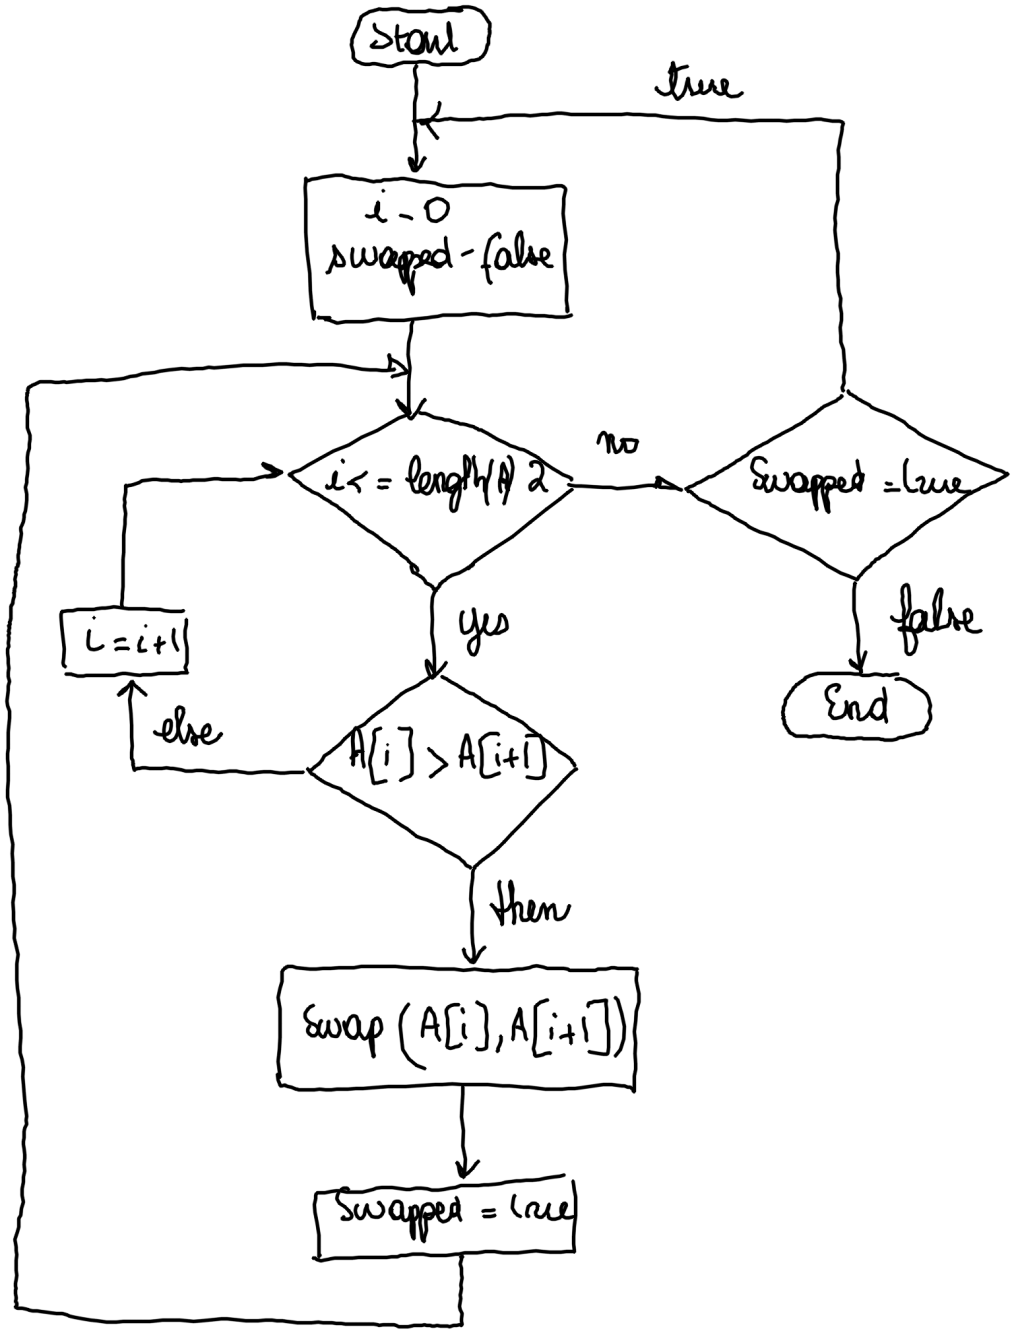 Start
true
i - 0
swapped - false
no
i < = length(A) 2
Swapped = true
yes
false
i = i+1
End
else
A[i] > A[i+1]
then
Swap (A[i], A[i+1])
Swapped = true